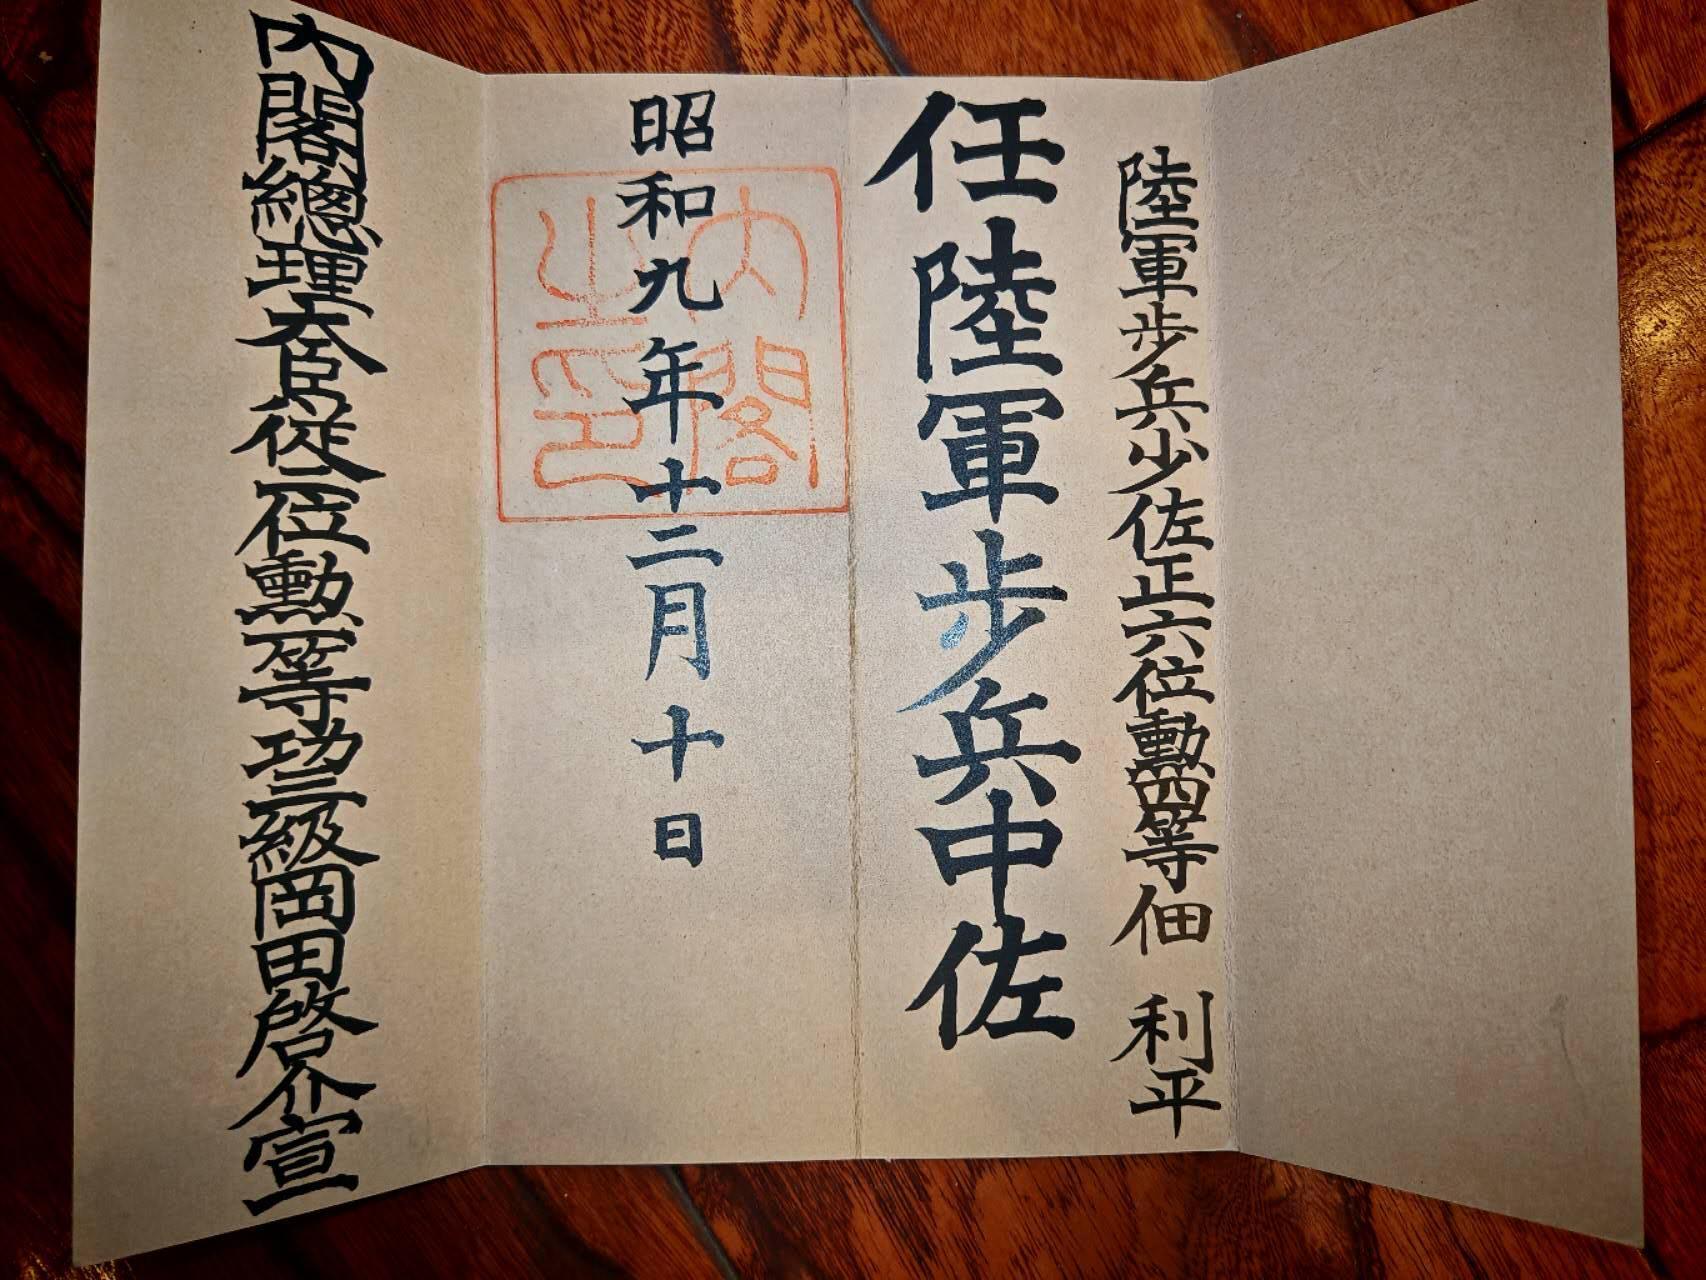 陸軍歩兵少佐正六位勳四等佃 利平
任陸軍歩兵中佐
昭和九年十二月十日
内閣之印
内閣總理大臣従二位勳一等功三級岡田啓介宣